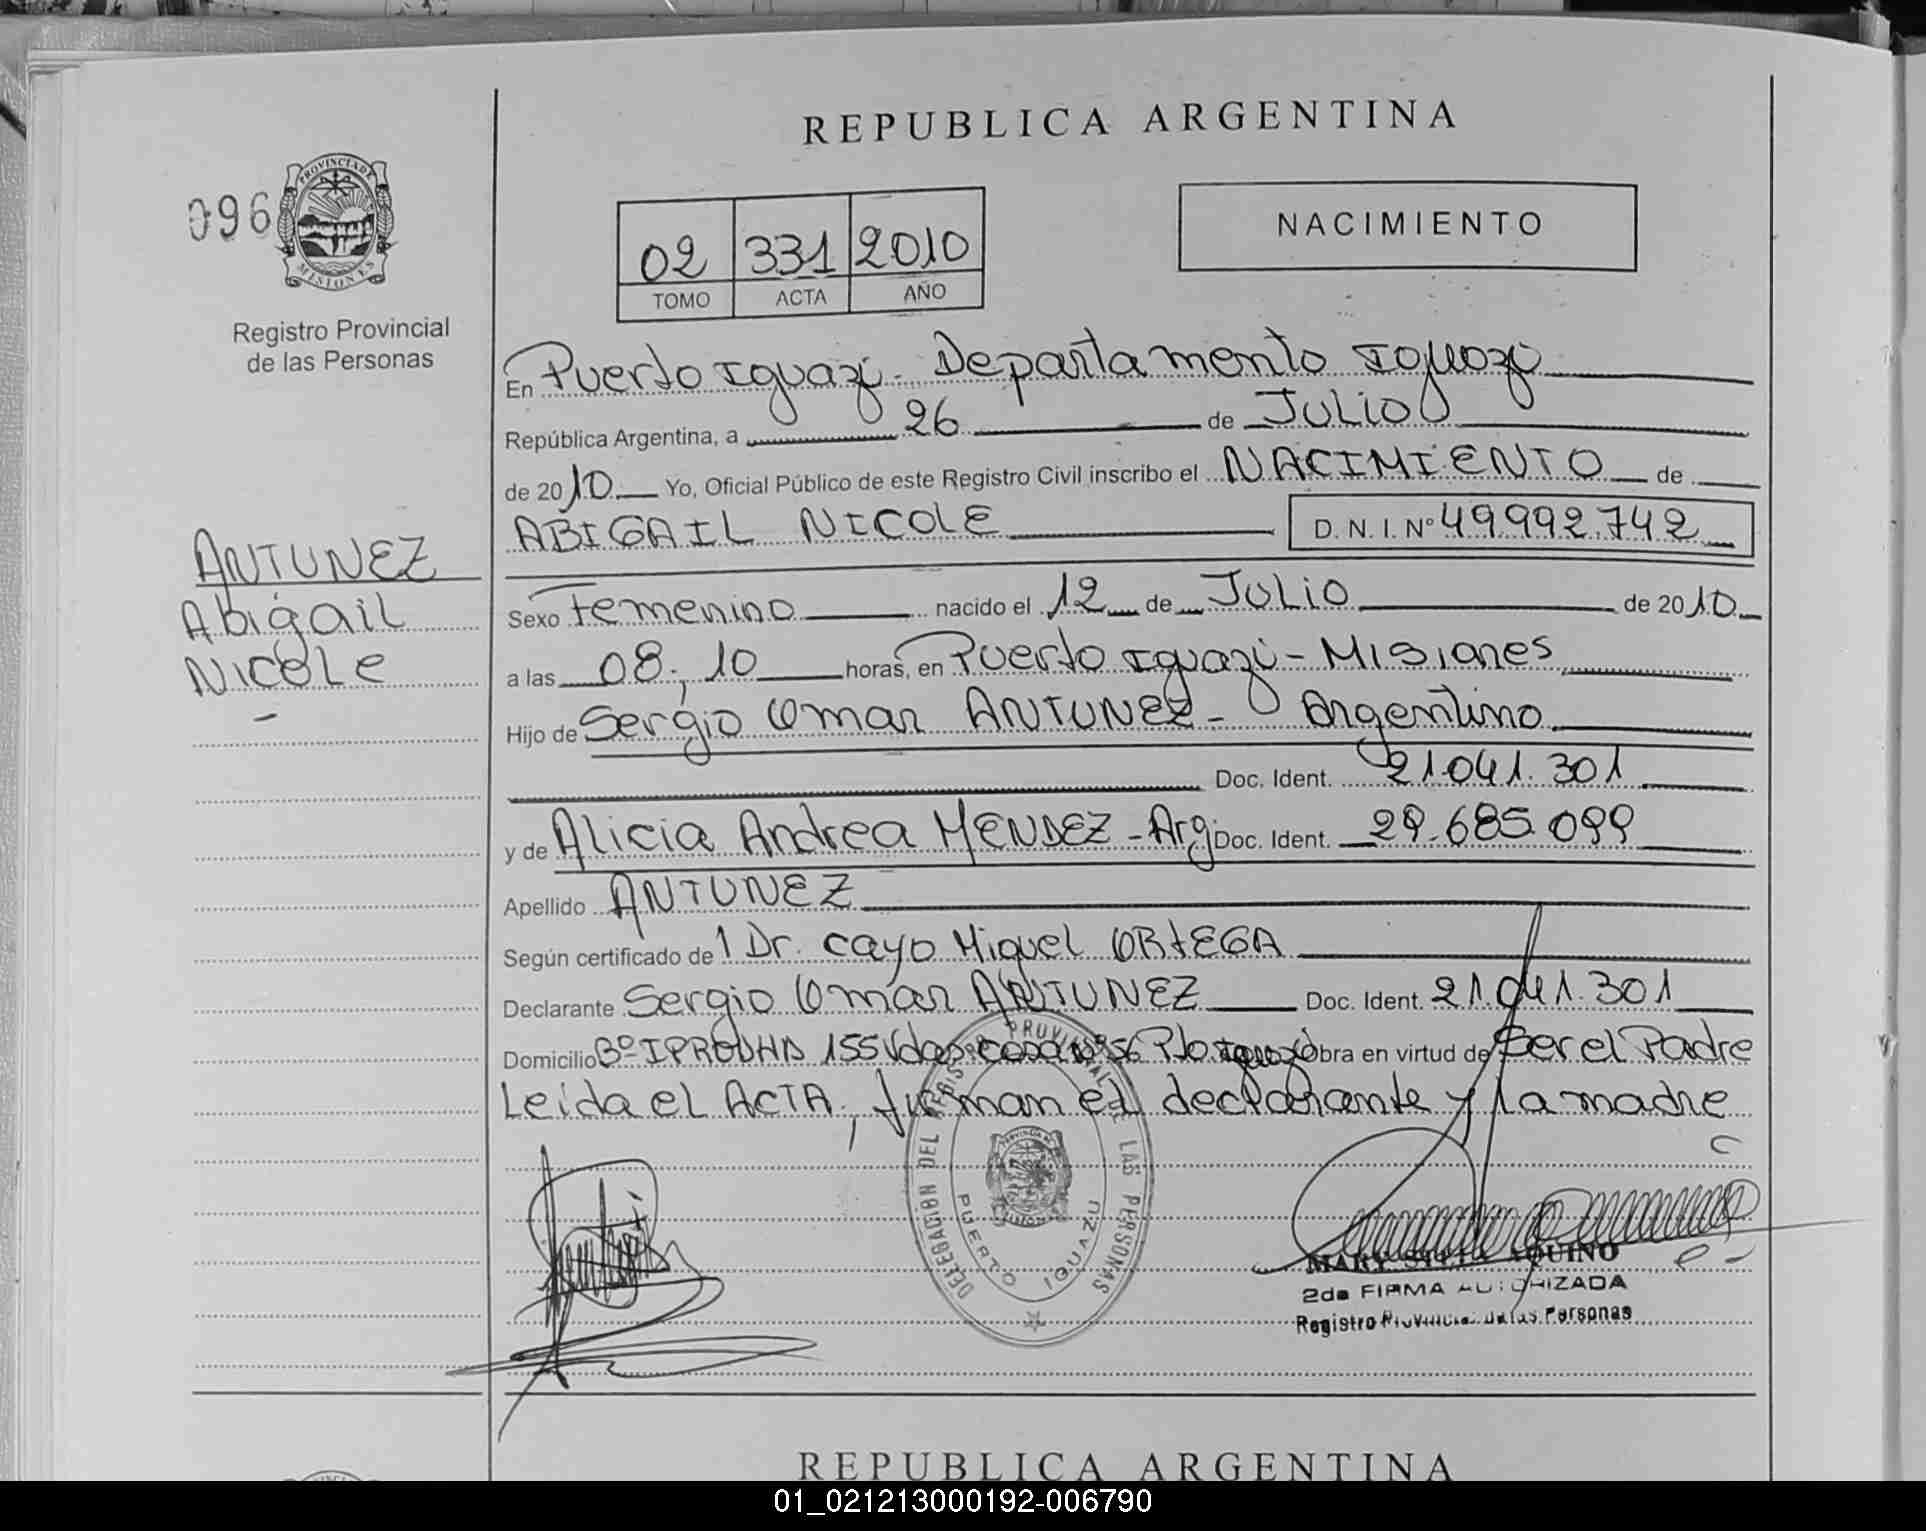 REPUBLICA ARGENTINA
096
PROVINCIA DE
MISIONES
Registro Provincial
de las Personas
02 331 2010
TOMO ACTA AÑO
NACIMIENTO
En Puerto Iguazú - Departamento Iguazú
República Argentina, a 26 de JULIO
de 2010 Yo, Oficial Público de este Registro Civil inscribo el NACIMIENTO de
ABIGAIL NICOLE D.N.I.Nº 49.992.742
ANTUNEZ
Abigail
NICOLE
Sexo Femenino nacido el 12 de JULIO de 2010
a las 08:10 horas, en Puerto Iguazú - Misiones
Hijo de Sergio Omar ANTUNEZ - Argentino
Doc. Ident. 21.041.301
y de Alicia Andrea MENDEZ - Arg. Doc. Ident. 29.685.099
Apellido ANTUNEZ
Según certificado de 1 Dr. Cayo Miguel ORTEGA
Declarante Sergio Omar ANTUNEZ Doc. Ident. 21.041.301
Domicilio Bº IPRODHA 155 Vdas casa Nº 56 Pto Iguazú Obra en virtud de Ser el Padre
Leída el ACTA, firman el declarante y la madre
DELEGACION DEL REGISTRO PROVINCIAL DE LAS PERSONAS
PUERTO IGUAZU
MARY SILVIA AQUINO
2da FIRMA AUTORIZADA
Registro Provincial de las Personas
REPUBLICA ARGENTINA
01_021213000192-006790